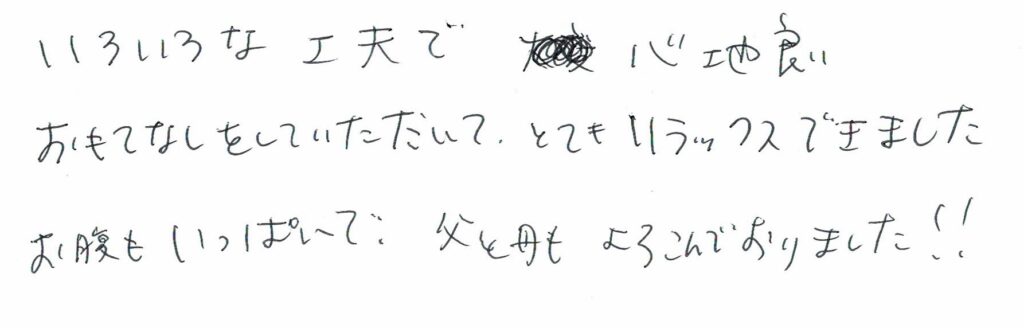 いろいろな工夫で 心地良い
おもてなしをしていただいて、とてもリラックスできました
お腹もいっぱいで、父と母も よろこんでおりました!!